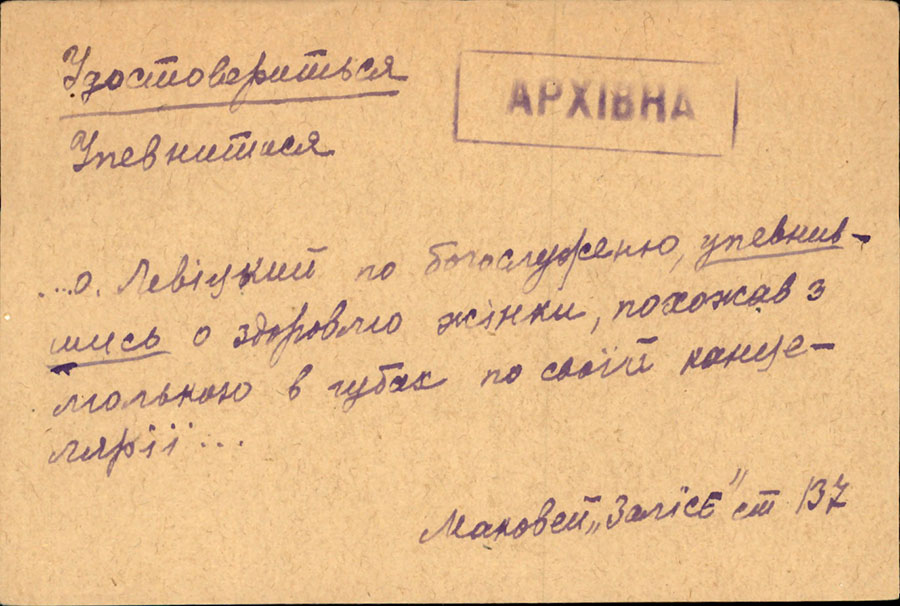 Удостовериться
АРХІВНА
Упевнитися
...о. Левіцкий по богослуженю, упевнив-
шись о здоровлю жінки, похожав з
люлькою в губах по своїй канце-
лярії...
Маковей „Залісє" ст 137